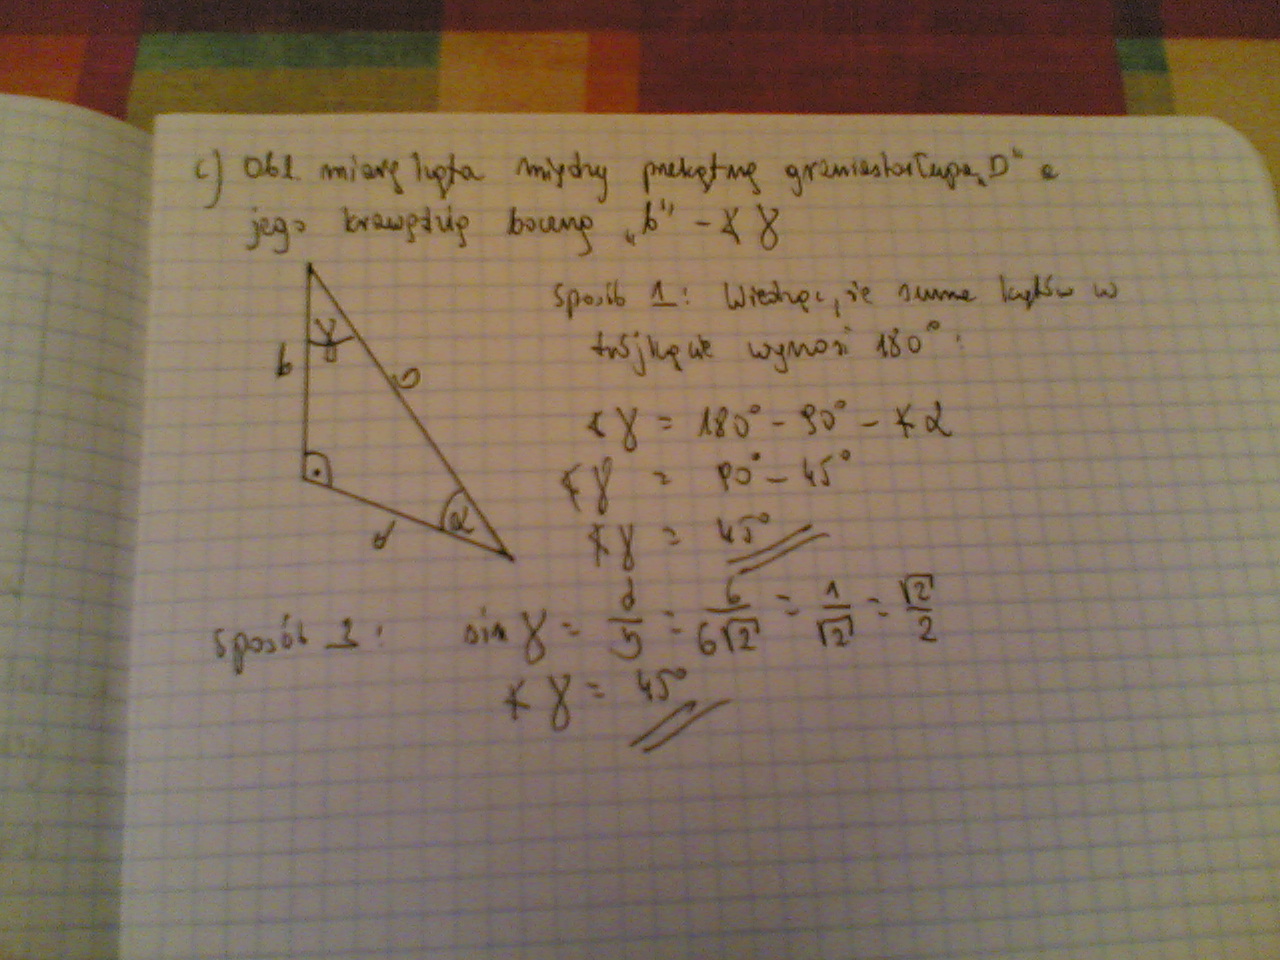 c) Obl. miarę kąta między przekątną graniastosłupa „D" a
jego krawędzią boczną „b" - ∢ γ
Sposób 1: Wiedząc, że suma kątów w
trójkącie wynosi 180°:
γ
b
D
∢ γ = 180° - 90° - ∢ α
∢ γ = 90° - 45°
α
d
∢ γ = 45°
Sposób 2: sin γ = d/D = 6/6√2 = 1/√2 = √2/2
∢ γ = 45°